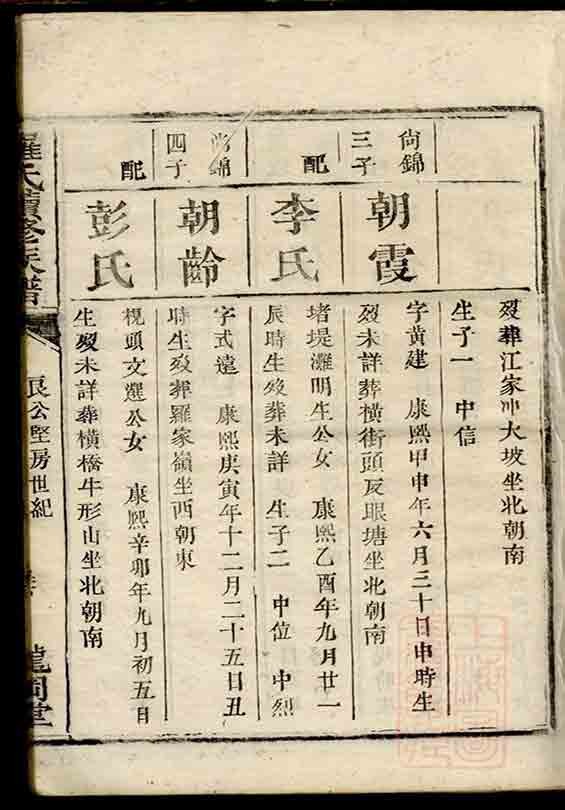 歿葬江家冲大坡坐北朝南
生子一 中信
尙錦
三子
朝霞
字黄建 康熙甲申年六月三十日申時生
歿未詳葬橫街頭反眼塘坐北朝南
配
李氏
堵堤灘明生公女 康熙乙酉年九月廿一
辰時生歿葬未詳 生子二 中位 中烈
尙錦
四子
朝齡
字式遠 康熙庚寅年十二月二十五日丑
時生歿葬羅家嶺坐西朝東
配
彭氏
梘頭文選公女 康熙辛卯年九月初五日
生歿未詳葬橫橋牛形山坐北朝南
羅氏續修族譜
良公堅房世紀